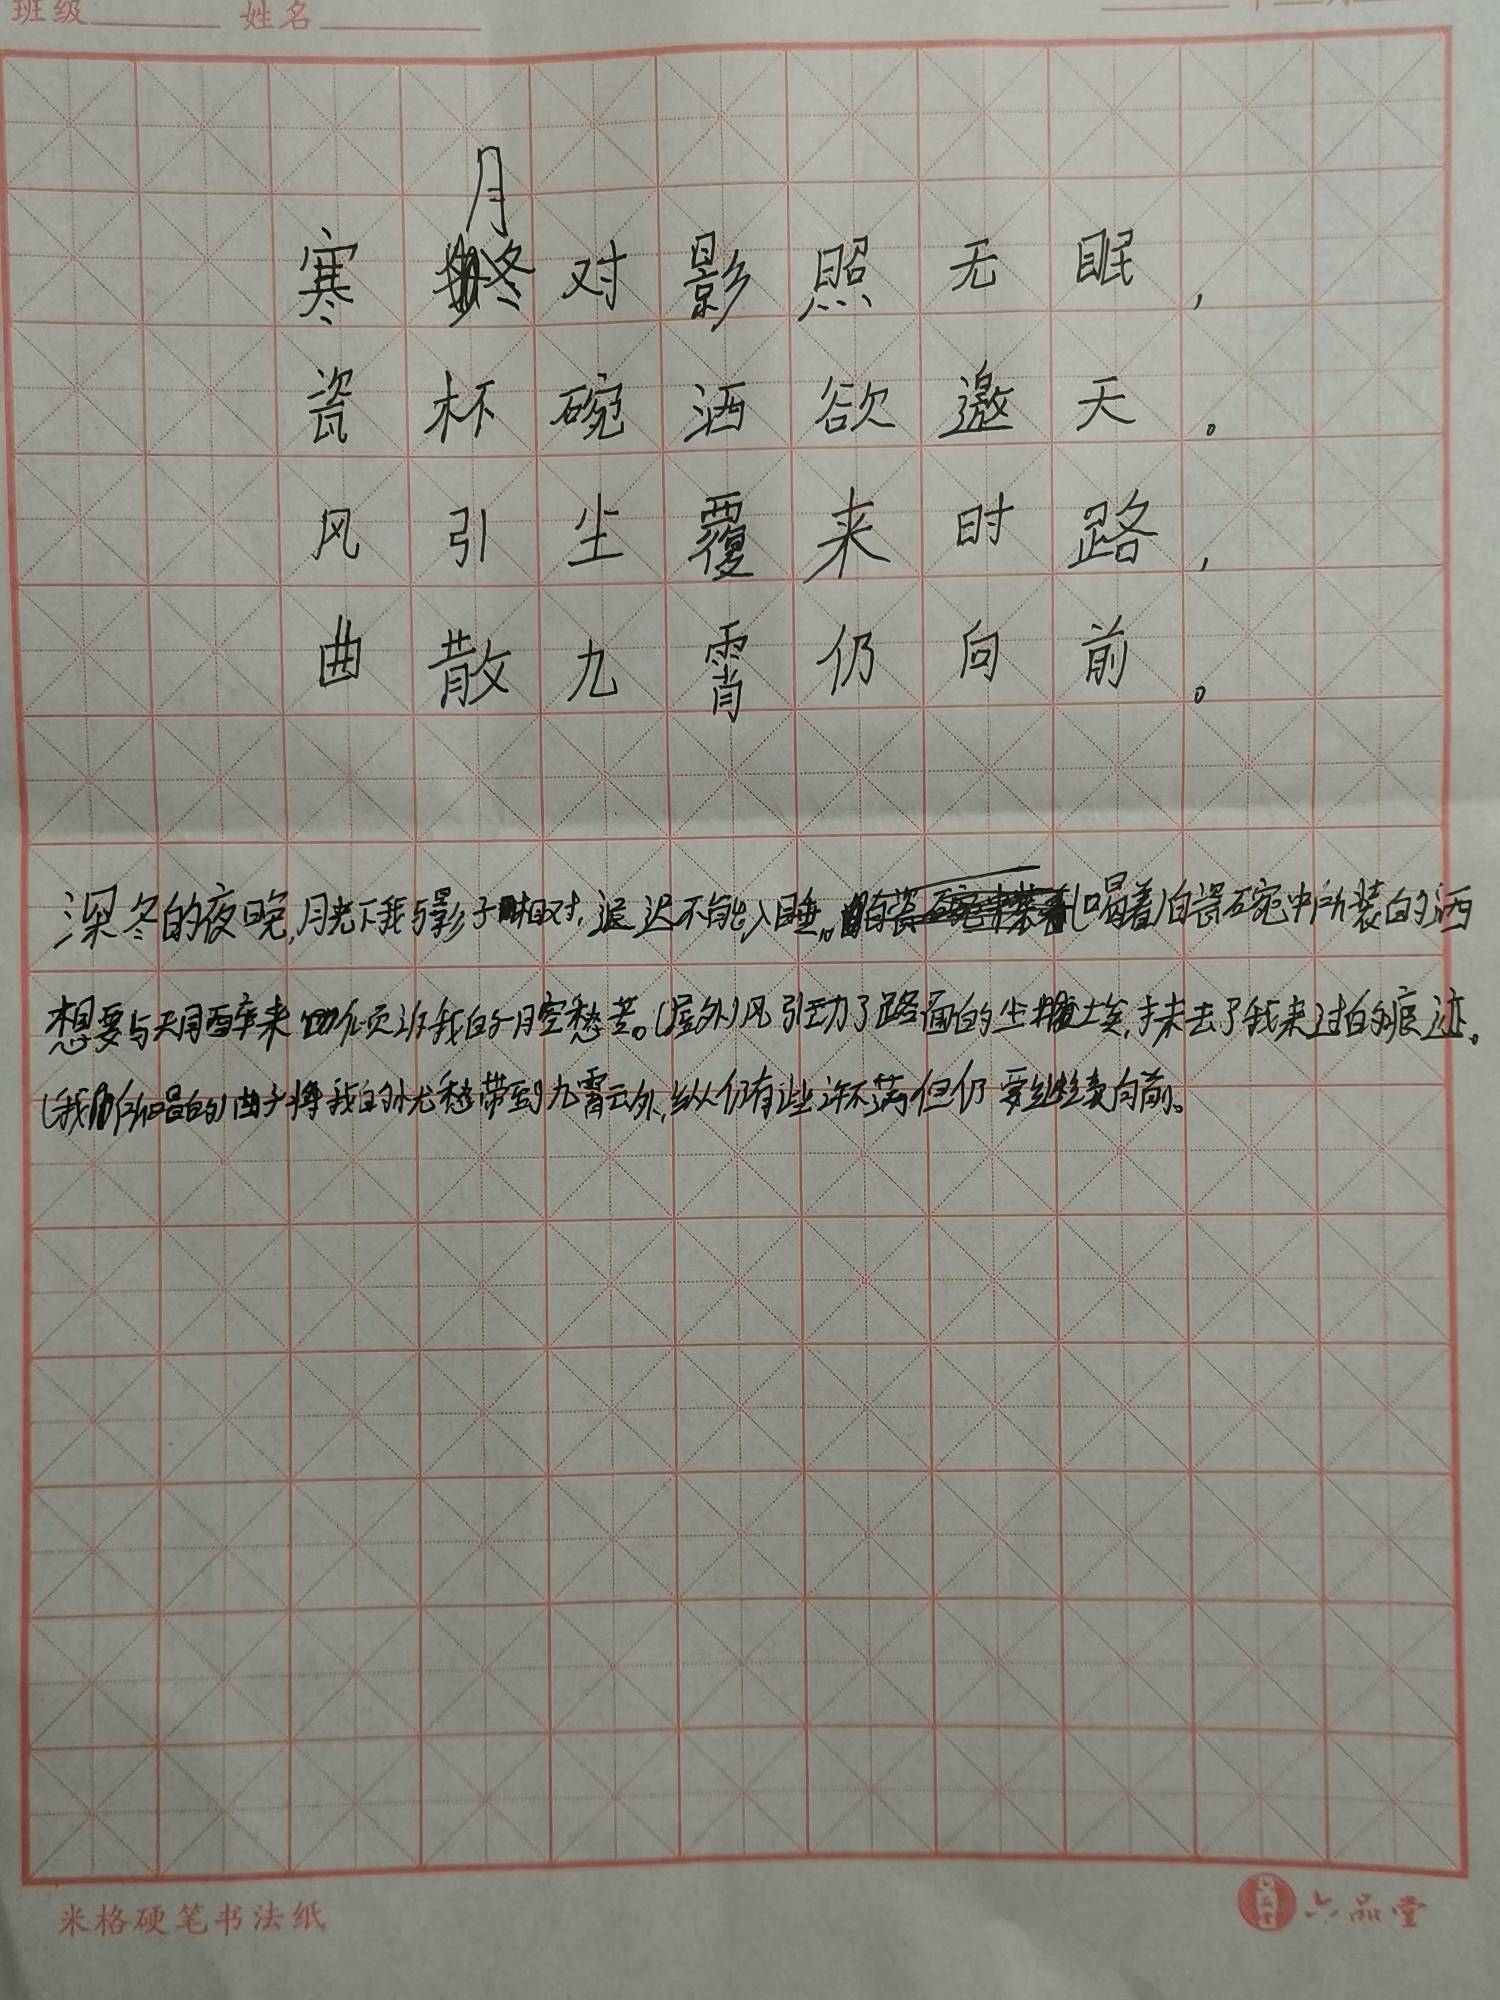 班级 姓名
月
寒冬对影照无眠，
瓷杯碗洒欲邀天。
风引尘覆来时路，
曲散九霄仍向前。
深冬的夜晚，月光下我与影子相对，迟迟不能入睡。(喝着)白瓷碗中所装的洒
想要与天同醉来 我的 空愁苦。(屋外)风引动了路面的尘土埃，抹去了我来过的痕迹。
(我所作的)曲子将我的忧愁带到九霄云外，纵仍有些许不满但仍要继续向前。
米格硬笔书法纸
六品堂